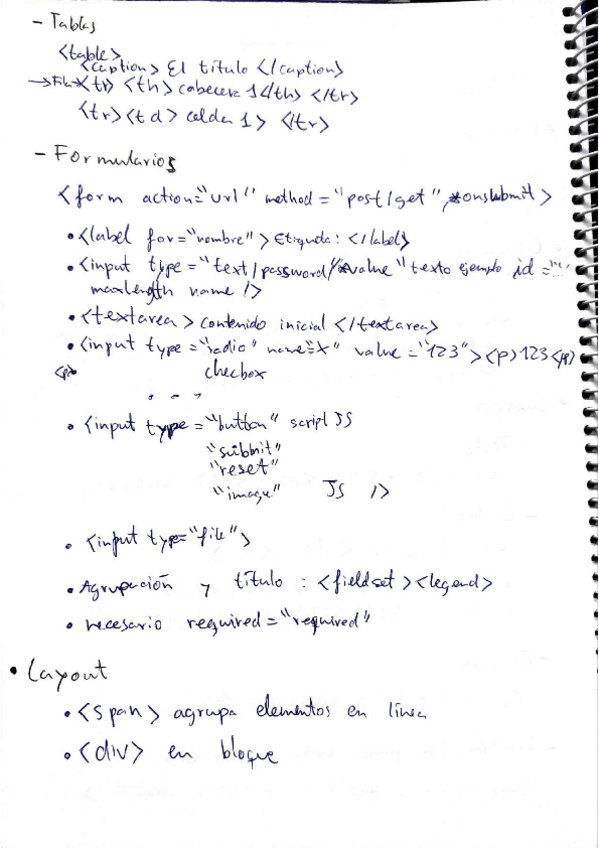 - Tablas
<table>
<caption> El título </caption>
→ Fila <tr> <th> cabecera 1 </th> </tr>
<tr> <td> celda 1 > </tr>
- Formularios
<form action="url" method = "post/get", onsubmit >
• <label for="nombre" > Etiqueta: </label>
• <input type = "text/password/ value "texto ejemplo id = "..."
maxlength name />
• <textarea > contenido inicial </textarea>
• <input type = "radio" name="X" value = "123" > <p> 123 </p>
<p> checbox
. . .
• <input type = "button" script JS
"submit"
"reset"
"image" JS />
• <input type="file" >
• Agrupación y título : <fieldset > <legend>
• necesario required = "required"
• Layout
• <span > agrupa elementos en línea
• <div> en bloque